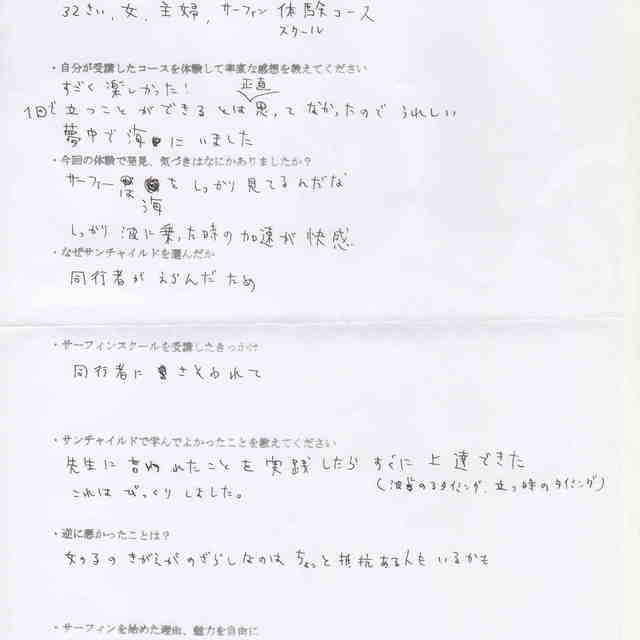 32さい、女、主婦、サーフィン 体験コース
スクール
・自分が受講したコースを体験して率直な感想を教えてください
すごく楽しかった!
正直
1回で立つことができるとは思ってなかったのでうれしい
夢中で海にいました
・今回の体験で発見、気づきはなにかありましたか?
サーファーは をしっかり見てるんだな
海
しっかり波に乗った時の加速が快感
・なぜサンチャイルドを選んだか
同行者がえらんだため
・サーフィンスクールを受講したきっかけ
同行者にさそわれて
・サンチャイルドで学んでよかったことを教えてください
先生に言われたことを実践したらすぐに上達できた
これはびっくりしました。
(波 のるタイミング、立つ時のタイミング)
・逆に悪かったことは?
女の きがえがのざらしなのはちょっと抵抗ある人もいるかも
・サーフィンを始めた理由、魅力を自由に